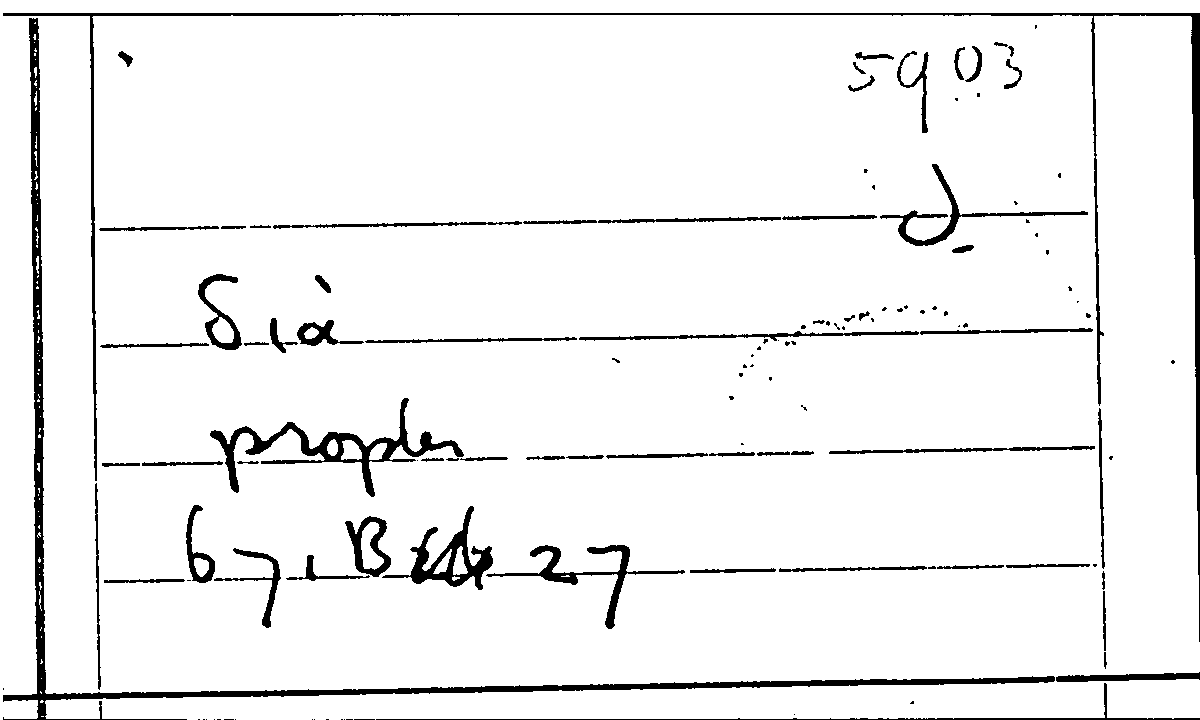 5903
J.
διὰ
propter
67, B 27